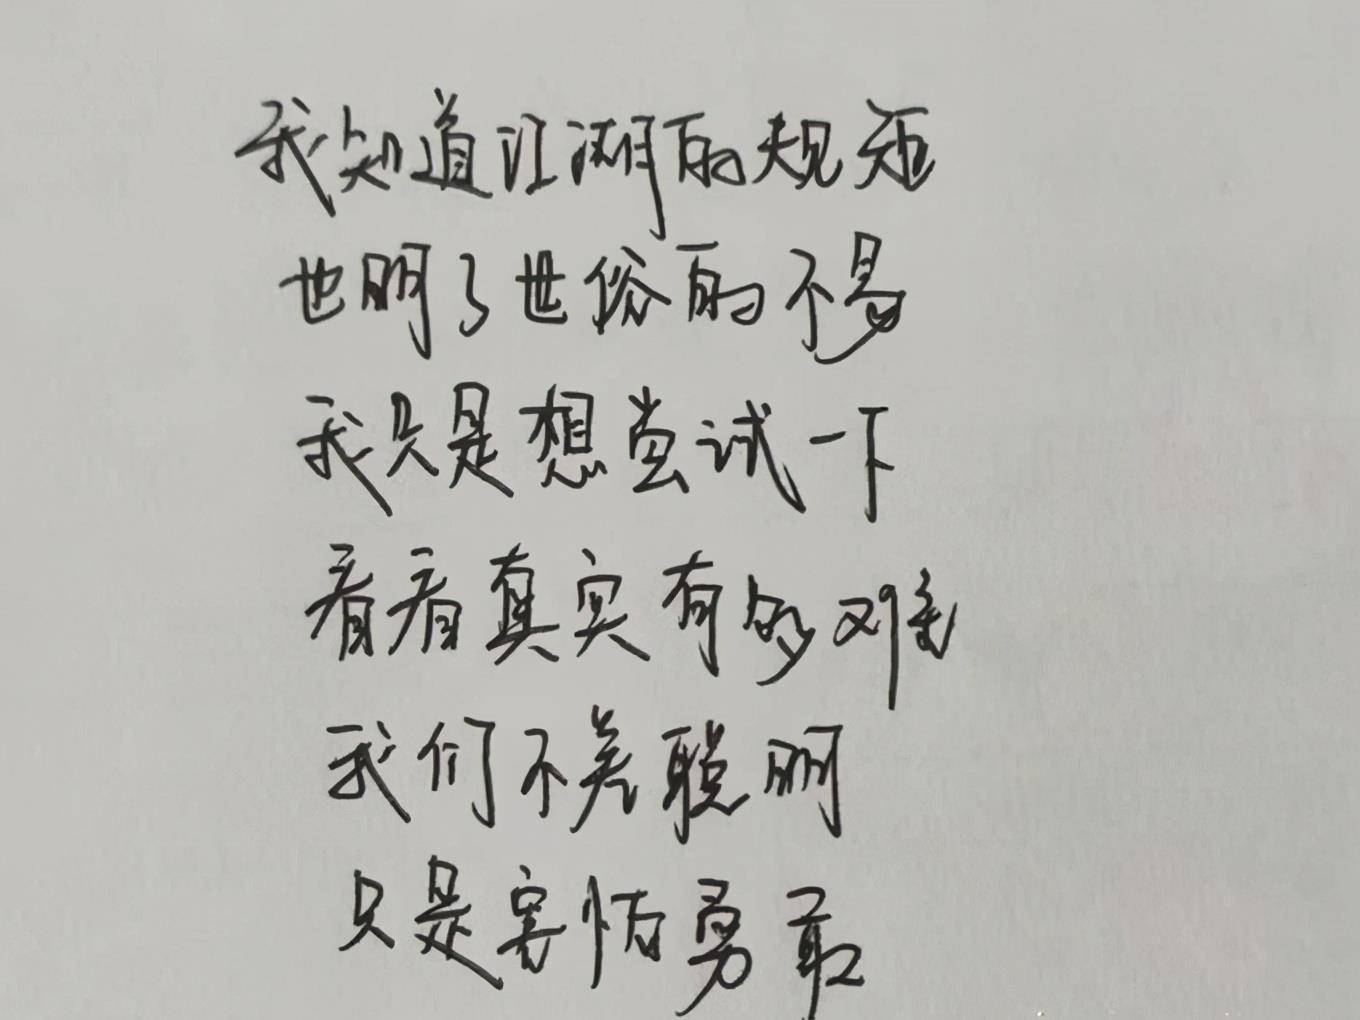 我知道江湖的规矩
也明了世俗的不易
我只是想尝试一下
看看真实有多难
我们不差聪明
只是害怕勇敢